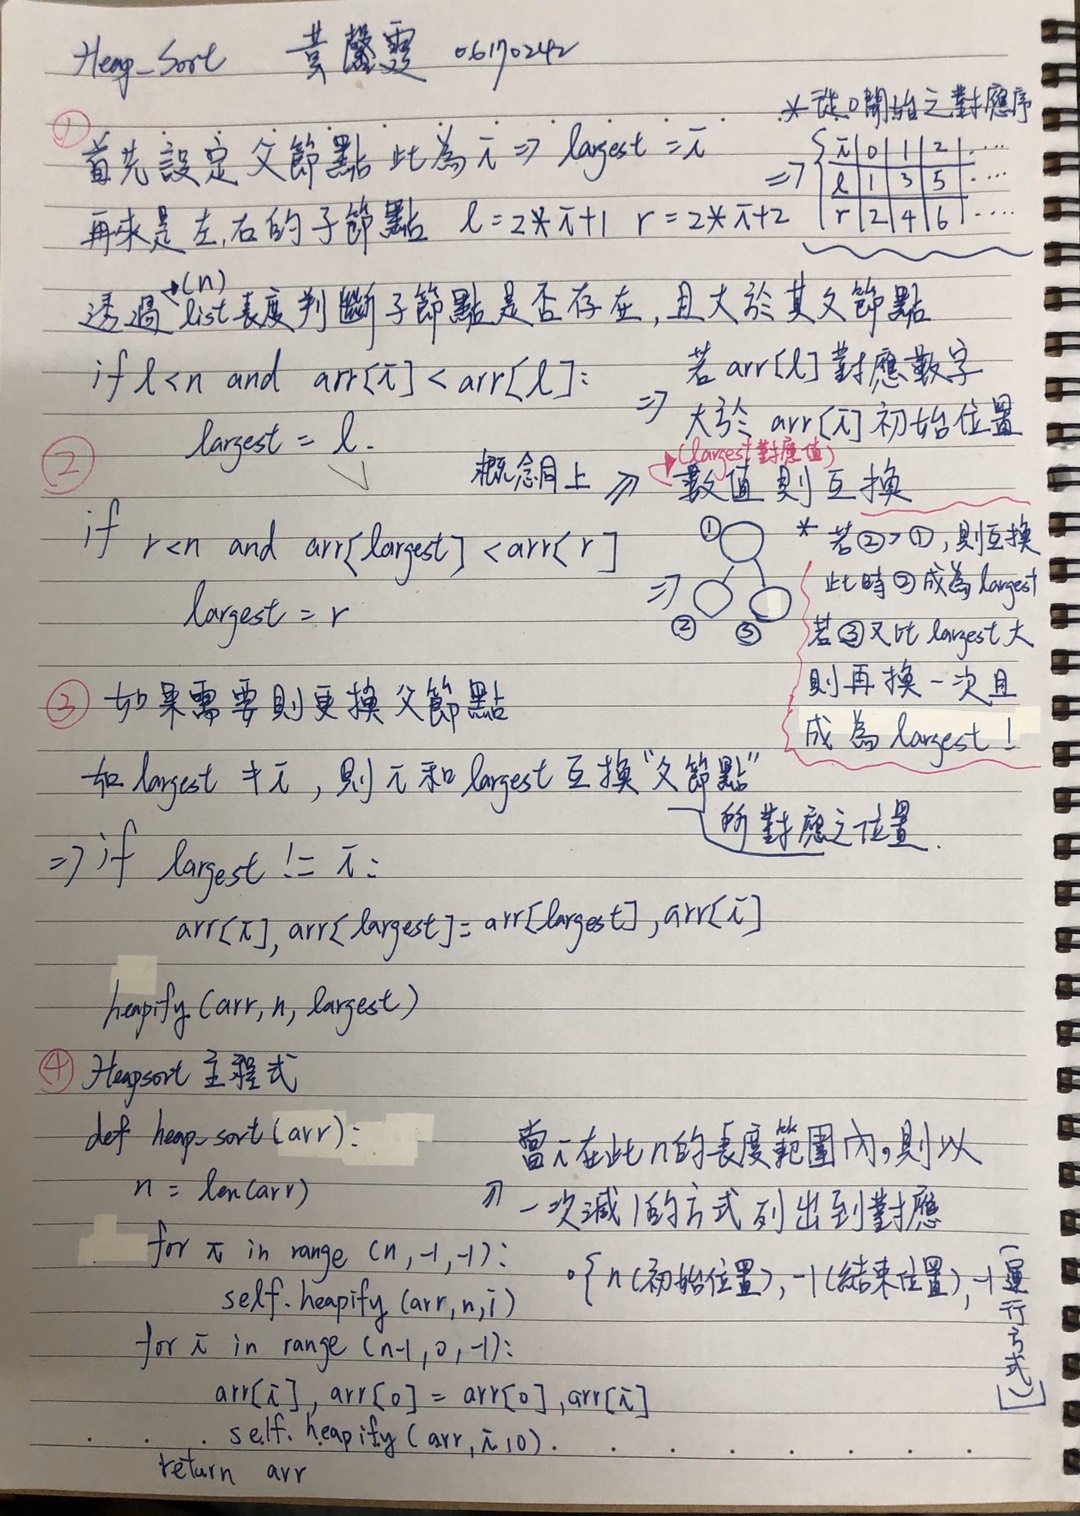 Heap_Sort 黃馨霆 06170242
① 首先設定父節點 此為 i => largest = i
再來是左,右的子節點 l = 2*i+1 r = 2*i+2
*從0開始之對應序
=> { i | 0 | 1 | 2 | ....
l | 1 | 3 | 5 | ....
r | 2 | 4 | 6 | ....
(n)
透過 list 長度判斷子節點是否存在,且大於其父節點
if l < n and arr[i] < arr[l]:
largest = l.
=> 若 arr[l] 對應數字
大於 arr[i] 初始位置
(largest對應值)
概念上 => 數值則互換
②
if r < n and arr[largest] < arr[r]
largest = r
=> ① ② ③
* 若②>①,則互換
此時②成為 largest
若③又比 largest 大
則再換一次且
成為 largest!
③ 如果需要則更換父節點
如 largest ≠ i , 則 i 和 largest 互換"父節點"
所對應之位置.
=> if largest != i:
arr[i], arr[largest] = arr[largest], arr[i]
heapify (arr, n, largest)
④ Heapsort 主程式
def heap_sort(arr):
n = len(arr)
for i in range (n,-1,-1):
self.heapify (arr,n,i)
for i in range (n-1,0,-1):
arr[i], arr[0] = arr[0], arr[i]
self.heapify (arr, i, 0).
return arr
=> 當 i 在此 n 的長度範圍內,則以
一次減1的方式列出到對應
{n(初始位置), -1(結束位置), -1(運行方式)}